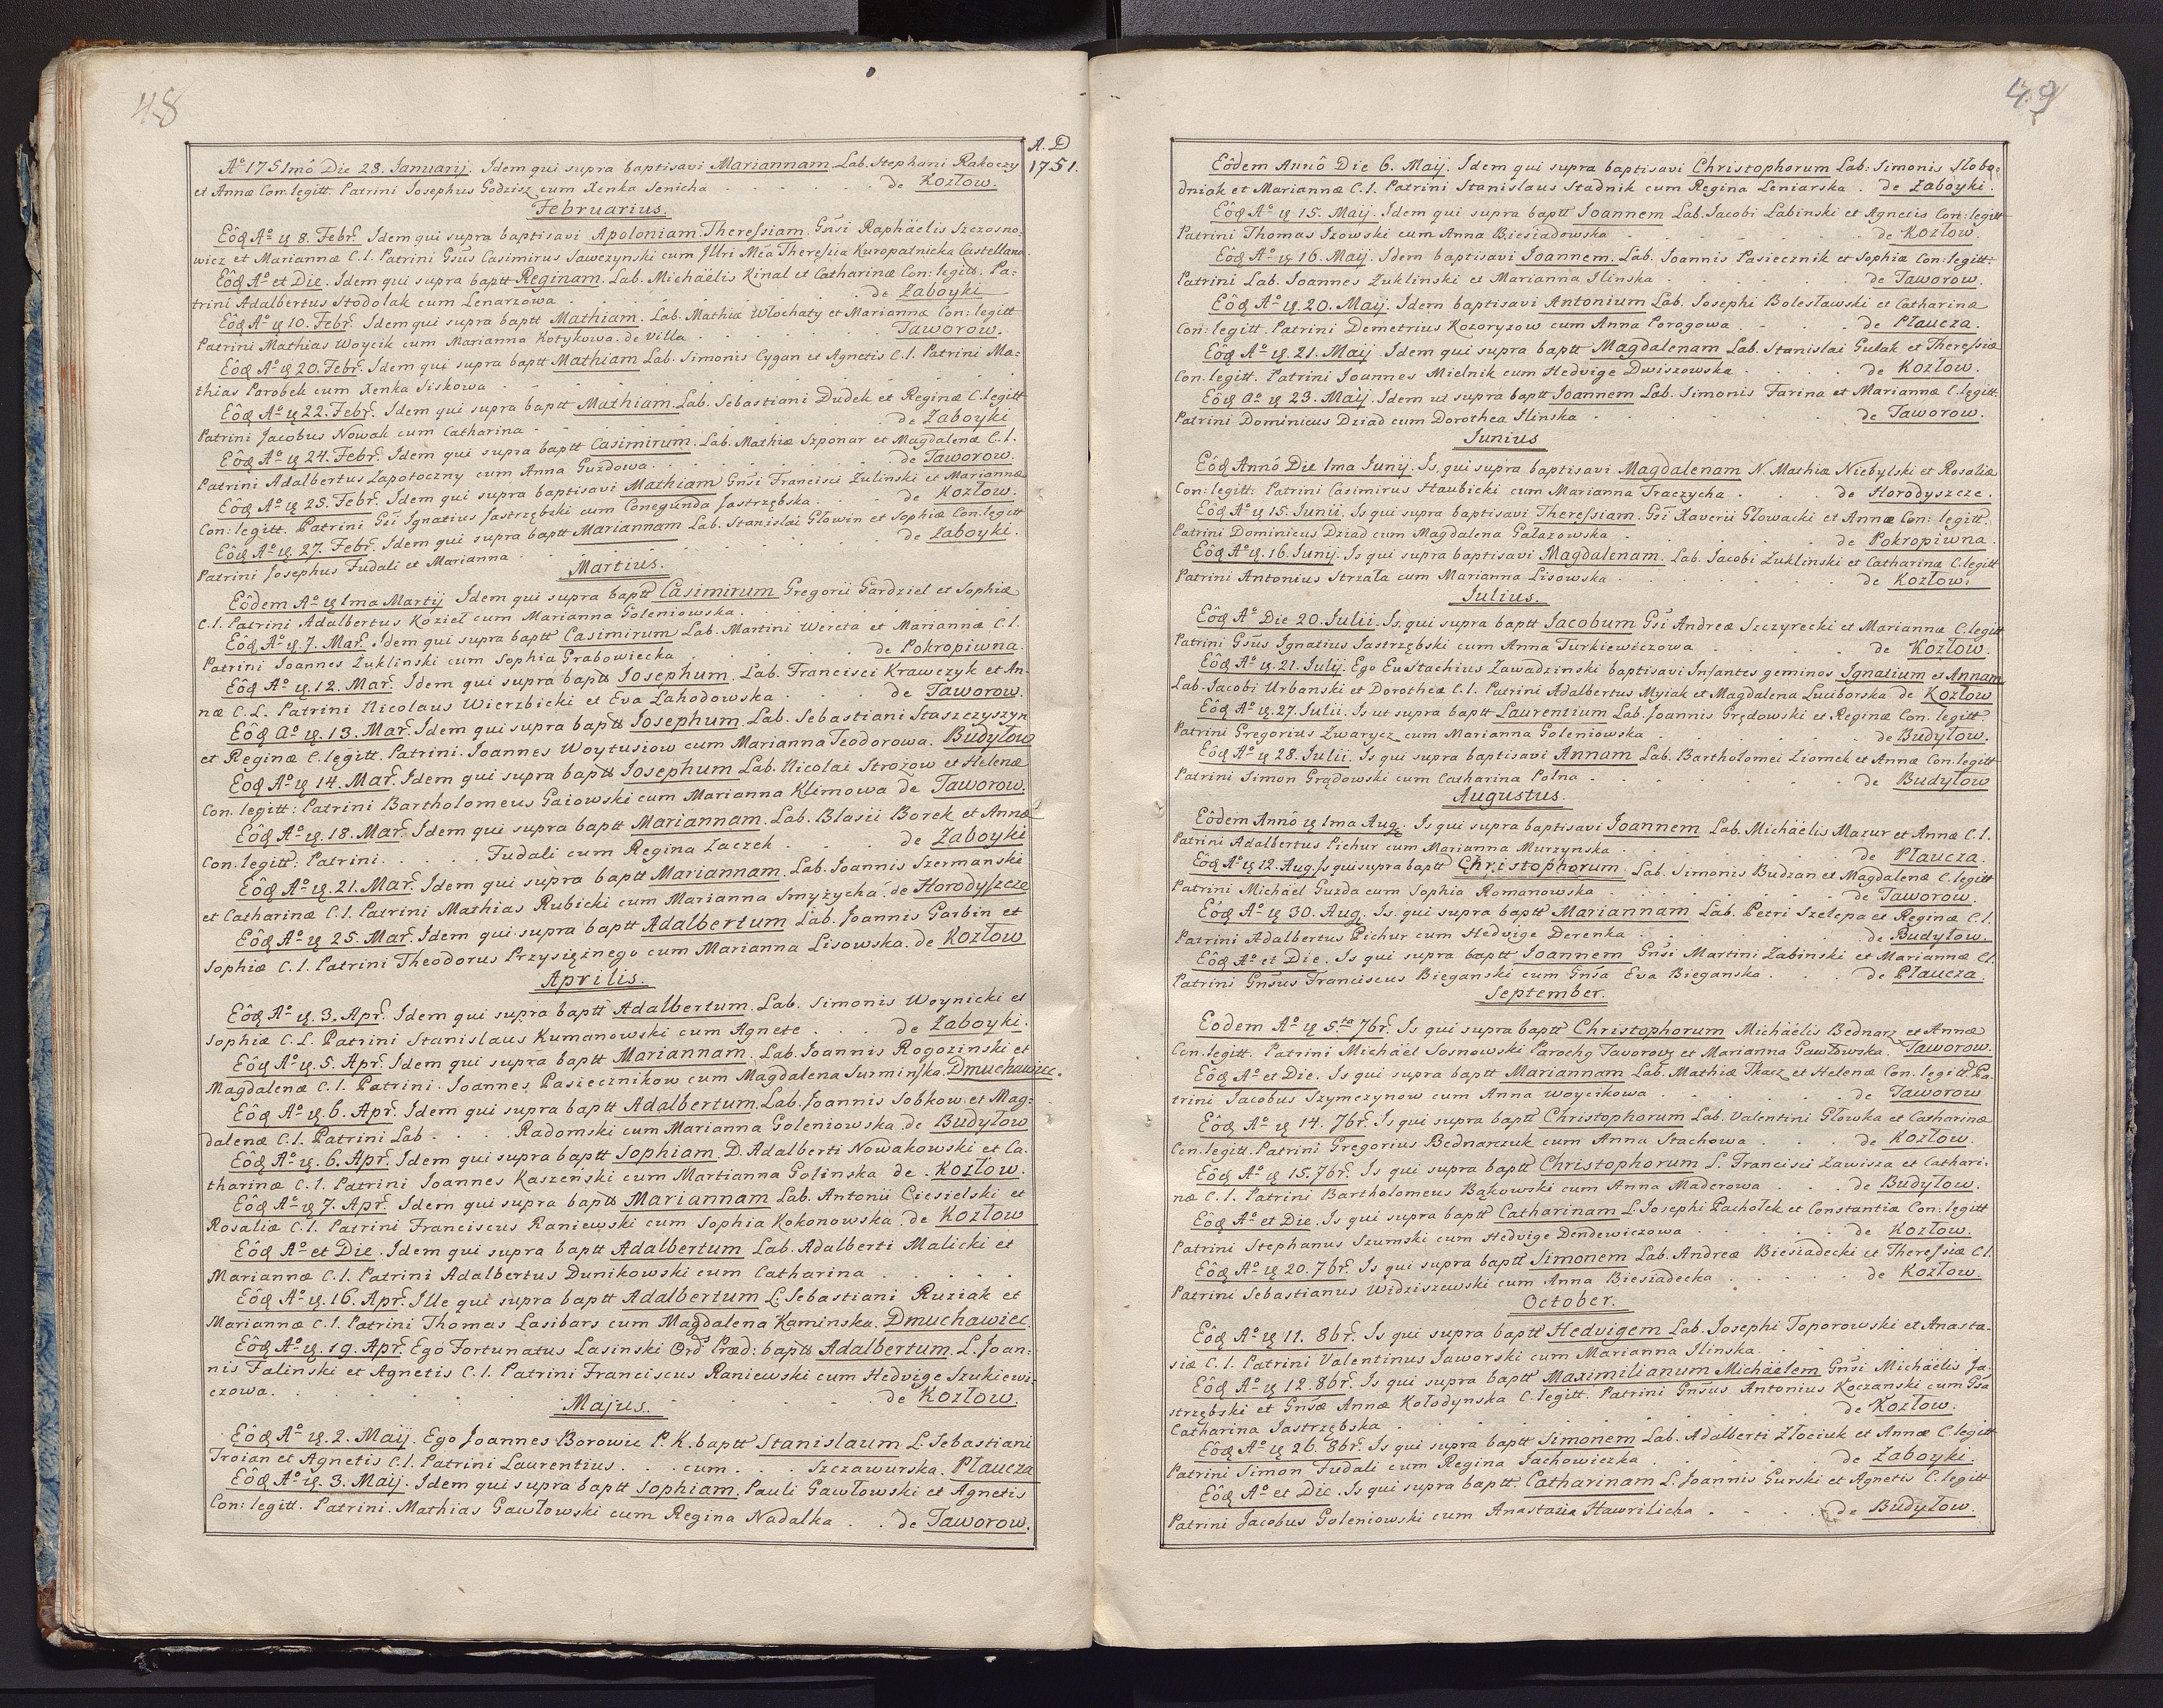 48
A. D
1751.
Aº 1751mô Die 28. Januarij. Idem qui supra baptisavi Mariannam Lab. Stephani Rakoczy
et Annæ Con. legitt. Patrini Josephus Godzisz cum Xenka Senicha . . . de Kozłow.
Februarius.
Eôđ Aº ų 8. Febr. Idem qui supra baptisavi Apoloniam Theressiam. Gñsi Raphäelis Szczosno-
wicz et Mariannæ C. l. Patrini Gsûs Casimirus Sawczynski cum Jllri Mea Theressia Kuropatnicka Castellana
Eôđ Aº et Die. Idem qui supra baptt Reginam. Lab. Michäelis Kinal et Catharinæ Con: legitt. Pa=
trini Adalbertus Stodolak cum Lenarzowa . . . de Zaboyki
Eôđ Aº ų 10. Febr. Idem qui supra baptt Mathiam. Lab. Mathiæ Włochaty et Mariannæ Con: legitt
Patrini Mathias Woycik cum Marianna Kotykowa. de Villa . . . Taworow.
Eôđ Aº ų 20. Febr. Idem qui supra baptt Mathiam Lab. Simonis Cygan et Agnetis C. l. Patrini Ma=
thias Porobek cum Xenka Siskowa . . .
Eôđ Aº ų 22. Febr. Idem qui supra baptt Mathiam. Lab. Sebastiani Dudek et Reginæ C. legitt
Patrini Jacobus Nowak cum Catharina . . . de Zaboyki
Eôđ Aº ų 24. Febr. Idem qui supra baptt Casimirum. Lab. Mathiæ Szponar et Magdalenæ C. l.
Patrini Adalbertus Zapotoczny cum Anna Guzdowa. . . . de Taworow.
Eôđ Aº ų 25. Febr. Idem qui supra baptisavi Mathiam Gñsi Francisci Zulinski et Mariannæ
Con: legitt. Patrini Gsi Ignatius Jastrzębski cum Conegunda Jastrzębska. . . de Kozłow.
Eôđ Aº ų 27. Febr. Idem qui supra baptt Mariannam Lab. Stanislai Głowin et Sophiæ Con. legitt
Patrini Josephus Fudali et Marianna . . . de Zaboyki.
Martius.
Eôdem Aº ų 1ma Martij Idem qui supra baptt Casimirum Gregorii Gardziel et Sophiæ
C. l. Patrini Adalbertus Kozieł cum Marianna Goleniowska. . . .
Eôđ Aº ų. 7. Mar. Idem qui supra baptt Casimirum Lab. Martini Wereta et Mariannæ C. l.
Patrini Joannes Zuklinski cum Sophia Grabowiecka . . . de Pokropiwna.
Eôđ Aº ų. 12. Mar. Idem qui supra baptt Josephum. Lab. Francisci Krawczyk et An-
næ C. L. Patrini Nicolaus Wierzbicki et Eva Lahodowska . . . de Taworow.
Eôđ aº ų. 13. Mar. Idem qui supra baptt Josephum. Lab. Sebastiani Staszczyszyn
et Reginæ C. legitt. Patrini. Joannes Woytusiow cum Marianna Teodorowa. Budyłow
Eôđ Aº ų 14. Mar. Idem qui supra baptt Josephum Lab. Nicolai Strozow et Helenæ
Con. legitt: Patrini Bartholomeus Gaiowski cum Marianna Klimowa de Taworow.
Eôđ Aº ų. 18. Mar. Idem qui supra baptt Mariannam. Lab. Blasii Borek et Annæ
Con. legitt: Patrini. . . . . Fudali cum Regina Zaczek . . . de Zaboyki
Eôđ Aº ų. 21. Mar. Idem qui supra baptt Mariannam. Lab. Joannis Szermanski
et Catharinæ C. l. Patrini Mathias Rubicki cum Marianna Smyzycha. de Horodyszcze
Eôđ Aº ų 25. Mar. Idem qui supra baptt Adalbertum Lab. Joannis Garbin et
Sophiæ C. l. Patrini Theodorus Przysięznego cum Marianna Lisowska. de Kozłow
Aprilis.
Eôđ Aº ų. 3. Apr. Idem qui supra baptt Adalbertum. Lab. Simonis Woynicki et
Sophiæ C. L. Patrini Stanislaus Kumanowski cum Agnete . . . de Zaboyki.
Eôđ Aº ų. 5. Apr. Idem qui supra baptt Mariannam. Lab. Joannis Rogozinski et
Magdalenæ C. l. Patrini. Joannes Pasiecznikow cum Magdalena Surminska. Dmuchawiec.
Eôđ Aº ų. 6. Apr. Idem qui supra baptt Adalbertum. Lab. Joannis Sobkow. et Mag=
dalenæ C. l. Patrini Lab . . . Radomski cum Marianna Goleniowska. de Budyłow
Eôđ Aº ų. 6. Apr. Idem qui supra baptt Sophiam D. Adalberti Nowakowski et Ca.
tharinæ C. l. Patrini Joannes Kaszeński cum Martianna Golinska de Kozłow.
Eôđ Aº ų 7. Apr. Idem qui supra baptt Mariannam Lab. Antonii Ciesielski et
Rosaliæ C. l. Patrini Franciscus Raniewski cum Sophia Kokonowska. de Kozłow
Eôđ Aº et Die. Idem qui supra baptt Adalbertum Lab. Adalberti Malicki et
Mariannæ C. l. Patrini Adalbertus Dunikowski cum Catharina . . .
Eôđ Aº ų. 16. Apr. Ille qui supra baptt Adalbertum L. Sebastiani Ruziak et
Mariannæ C. l. Patrini Thomas Lasibars cum Magdalena Kaminska. Dmuchawiec
Eôđ Aº ų. 19. Apr. Ego Fortunatus Lasinski Ord. Præd: baptt Adalbertum. L. Joan=
nis Falinski et Agnetis C. l. Patrini Franciscus Raniewski cum Hedvige Szukiewi-
czowa. . . . de Kozłow.
Majus.
Eôđ Aº ų. 2. Maij. Ego Joannes Borowic P. K. baptt Stanislaum L. Sebastiani
Troian et Agnetis C. l. Patrini Laurentius . . . cum . . . Szczawurska. Płaucza
Eôđ Aº ų. 3. Maij. Idem qui supra baptt Sophiam. Pauli Gawłowski et Agnetis
Con: legitt. Patrini. Mathias Gawłowski cum Regina Nadalka . . de Taworow.
49
Eôdem Annô Die 6. Maij. Idem qui supra baptisavi Christophorum Lab: Simonis Słobo=
dniak et Mariannæ C. l. Patrini Stanislaus Stadnik cum Regina Leniarska . de Zaboyki.
Eôđ Aº ų 15. Maij. Idem qui supra baptt Joannem Lab. Jacobi Labinski et Agnetis Con: legitt
Patrini Thomas Izowski cum Anna Biesiadowska . . . de Kozłow.
Eôđ Aº ų 16. Maij. Idem baptisavi Joannem. Lab. Joannis Pasiecznik et Sophiæ Con: legitt:
Patrini Lab. Joannes Zuklinski et Marianna Ilinska . . . de Taworow.
Eôđ Aº ų. 20. Maij. Idem baptisavi Antonium Lab. Josephi Bolesławski et Catharinæ
Con: legitt. Patrini Demetrius Kozoryzow cum Anna Porogowa . . . de Płaucza.
Eôđ Aº ų. 21. Maij. Idem qui supra baptt Magdalenam Lab. Stanislai Gułak et Theressiæ
Con. legitt. Patrini Joannes Mielnik cum Hedvige Dwiszowska . . . de Kozłow.
Eôđ aº ų 23. Maij. Idem ut supra baptt Joannem Lab. Simonis Farina et Mariannæ C. legitt.
Patrini Dominicus Dziad cum Dorothea Ilinska . . . de Taworow.
Junius
Eôđ Annô Die 1ma Junij. Is qui supra baptisavi Magdalenam N. Mathiæ Niebylski et Rosaliæ
Con: legitt: Patrini Casimirus Haubicki cum Marianna Traczycha . . . de Horodyszcze.
Eôđ Aº ų 15. Junii. Is qui supra baptisavi Theressiam. Gsi Xaverii Głowacki et Annæ Con: legitt.
Patrini Dominicus Dziad cum Magdalena Gałazowska . . . de Pokropiwna
Eôđ Aº ų. 16. Junij. Is qui supra baptisavi Magdalenam. Lab. Jacobi Zuklinski et Catharinæ C. legitt
Patrini Antonius Strzała cum Marianna Lisowska . . . de Kozłow.
Julius.
Eôđ Aº Die 20. Julii. Is, qui supra baptt Jacobum Gsi Andreæ Szczyrecki et Mariannæ C. legitt
Patrini Gsûs Ignatius Jastrzębski cum Anna Turkiewiczowa . . . de Kozłow.
Eôđ Aº ų. 21. Julij. Ego Eustachius Zawadzinski baptisavi Infantes geminos Ignatium et Annam
Lab. Jacobi Urbanski et Dorotheæ C. l. Patrini Adalbertus Myiak et Magdalena Luciborska de Kozłow
Eôđ Aº ų. 27. Julii. Is ut supra baptt Laurentium Lab. Joannis Grędowski et Reginæ Con. legitt.
Patrini Gregorius Zwarycz cum Marianna Goleniowska . . . de Budyłow.
Eôđ Aº ų 28. Julii. Is qui supra baptisavi Annam Lab. Bartholomei Ziomek et Annæ Con. legitt
Patrini Simon Grądowski cum Catharina Polna . . . de Budyłow
Augustus.
Eôdem Annô ų 1ma Aug. Is qui supra baptisavi Joannem Lab. Michäelis Mazur et Annæ C. l.
Patrini Adalbertus Pichur cum Marianna Murzynska . . . de Płaucza.
Eôđ Aº ų 12. Aug. Is qui supra baptt Christophorum. Lab. Simonis Budzan et Magdalenæ C. legitt
Patrini Michäel Guzda cum Sophia Romanowska . . . de Taworow.
Eôđ Aº ų 30. Aug. Is. qui supra baptt Mariannam Lab. Petri Szelepa et Reginæ C. l.
Patrini Adalbertus Pichur cum Hedvige Derenka . . . de Budyłow.
Eôđ Aº et Die. Is qui supra baptt Joannem Gñsi Martini Zabinski et Mariannæ Cl.
Patrini Gnsus Franciscus Bieganski cum Gnsa Eva Bieganska . . . de Płaucza.
September.
Eodem Aº ų 5.ta 7br. Is qui supra baptt Christophorum Michäelis Bednarz et Annæ
Con. legitt. Patrini Michäel Sosnowski Parochq Tavorowq et Marianna Gawłowska. Taworow.
Eôđ Aº et Die. Is qui supra baptt Mariannam Lab. Mathiæ Tkacz et Helenæ Con. legitt. Pa-
trini Jacobus Szymczynow cum Anna Woycikowa . . . de Taworow
Eôđ Aº ų 14. 7br. Is qui supra baptt Christophorum Lab. Valentini Głowka et Catharinæ
Con. legitt. Patrini Gregorius Bednarczuk cum Anna Stachowa . . . de Kozłow.
Eôđ Aº ų 15. 7br. Is qui supra baptt Christophorum L. Francisci Zawisza et Cathari-
næ C. l. Patrini Bartholomeus Bąkowski cum Anna Maderowa . . . de Budyłow.
Eôđ Aº et Die. Is qui supra baptt Catharinam L. Josephi Pachołek et Constantiæ Con: legitt
Patrini Stephanus Szumski cum Hedvige Dendewiczowa . . . de Kozłow.
Eôđ Aº ų 20. 7br. Is qui supra baptt Simonem Lab. Andreæ Biesiadecki et Theressiæ C l.
Patrini Sebastianus Widziszewski cum Anna Biesiadecka . . . de Kozłow.
October.
Eôđ Aº ų 11. 8br. Is qui supra baptt Hedvigem Lab. Josephi Toporowski et Anasta-
siæ C. l. Patrini Valentinus Jaworski cum Marianna Ilinska. . . .
Eôđ Aº ų 12. 8br. Is qui supra baptt Maximilianum Michäelem Gñsi Michäelis Ja.
strzębski et Gnsæ Annæ Kołodynska C. legitt. Patrini Gnsus Antonius Koczanski cum Gsa
Catharina Jastrzębska . . . de Kozłow.
Eôđ Aº ų 26. 8br. Is qui supra baptt Simonem Lab. Adalberti Złociuk et Annæ C. legitt
Patrini Simon Fudali cum Regina Sachowiczka . . . de Zaboyki.
Eôđ Aº et Die. Is qui supra baptt. Catharinam L. Joannis Gurski et Agnetis C. legitt
Patrini Jacobus Goleniowski cum Anastazia Hawrilicha . . . de Budyłow.